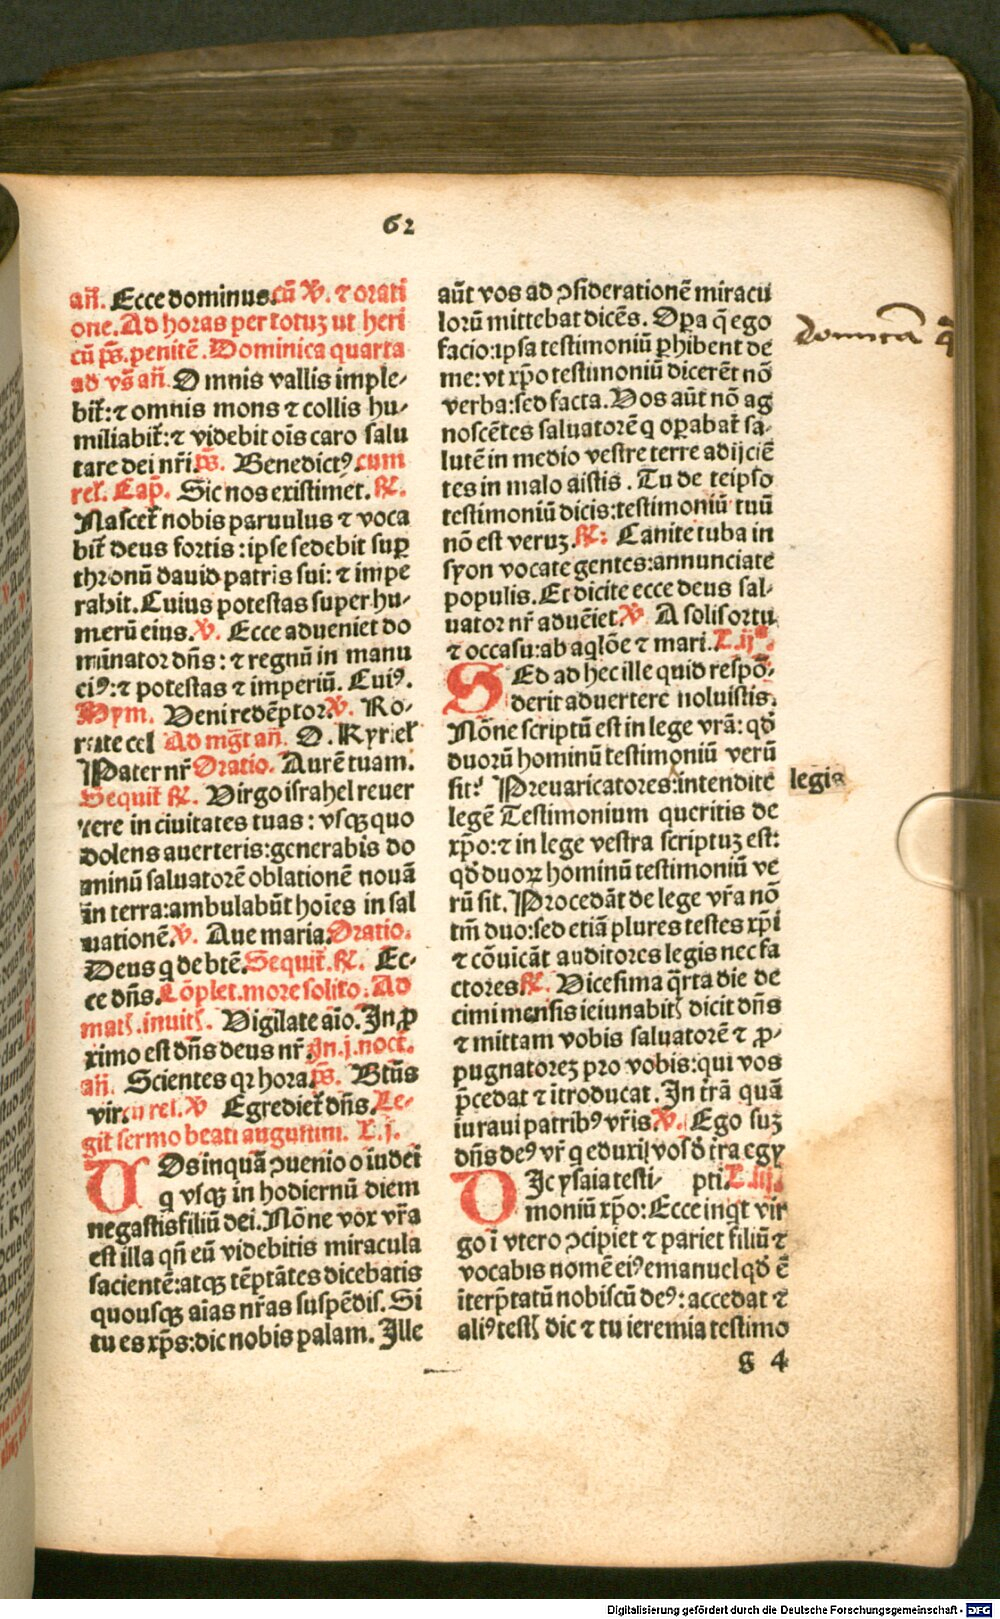 62
añ. Ecce dominus. cū ℣. ⁊ orati
one. Ad horas per totuꝫ ut heri
cū p̄s. penitē. Dominica quarta
ad vs̄ añ. Omnis vallis imple-
bit᷑: ⁊ omnis mons ⁊ collis hu-
miliabit᷑: ⁊ videbit oīs caro salu
tare dei nr̄i. p̄s. Benedictꝰ. cum
rel. Cap̄. Sic nos existimet. ℟.
Nascet᷑ nobis paruulus ⁊ voca
bit᷑ deus fortis: ipse sedebit suꝑ
thronū dauid patris sui: ⁊ impe
rabit. Cuius potestas super hu-
merū eius. ℣. Ecce adueniet do
minator dn̄s: ⁊ regnū in manu
eiꝰ: ⁊ potestas ⁊ imperiū. Cuiꝰ.
Hym. Veni redēptor. ℣. Ro-
rate cel Ad mgt̄ añ. O. Kyriel
Pater nr̄ Oratio. Aurē tuam.
Sequit᷑ ℟. Virgo israhel reuer
tere in ciuitates tuas: vsqꝫ quo
dolens auerteris: generabis do
minū saluatorē oblationē nouā
in terra: ambulabūt hoīes in sal
uationē. ℣. Aue maria. Oratio.
Deus q de btē. Sequit᷑. ℟. Ec-
ce dn̄s. Cōplet. more solito. Ad
matꝭ. inuitꝭ. Vigilate aīo. In ꝓ
ximo est dn̄s deus nr̄. In .j. noct᷑.
añ. Scientes qꝛ hora. p̄s. Btūs
vir. cū rel. ℣ Egrediet᷑ dn̄s. Le-
git᷑ sermo beati augustini. L. j.
VOs inquā ↄuenio o iudei
q vsqꝫ in hodiernū diem
negastis filiū dei. Nōne vox vr̄a
est illa qn̄ eū videbitis miracula
facientē: atqꝫ tēptātes dicebatis
quousqꝫ aīas nr̄as suspēdis. Si
tu es xp̄s: dic nobis palam. Ille
aūt vos ad ↄsiderationē miracu
lorū mittebat dicēs. Oꝑa q̄ ego
facio: ipsa testimoniū ꝑhibent de
me: vt xp̄o testimoniū dicerēt nō
verba: sed facta. Vos aūt nō ag
noscētes saluatorē q oꝑabat᷑ sa-
lutē in medio vestre terre adijciē
tes in malo aistis. Tu de teipso
testimoniū dicis: testimoniū tuū
nō est veruꝫ. ℟: Canite tuba in
syon vocate gentes: annunciate
populis. Et dicite ecce deus sal-
uator nr̄ aduēiet. ℣. A solis ortu
⁊ occasu: ab aq̄lōe ⁊ mari. L. ijª.
SEd ad hec ille quid respō-
derit aduertere noluistis.
Nōne scriptū est in lege vr̄a: qd̄
duorū hominū testimoniū verū
sit? Preuaricatores: intendite
legē Testimonium queritis de
xp̄o: ⁊ in lege vestra scriptuꝫ est:
qd̄ duoꝝ hominū testimoniū ve
rū sit. Procedāt de lege vr̄a nō
tm̄ duo: sed etiā plures testes xp̄i
⁊ cōuicāt auditores legis nec fa
ctores. ℟. Vicesima q̄rta die de
cimi mensis ieiunabitꝭ dicit dn̄s
⁊ mittam vobis saluatorē ⁊ ꝓ-
pugnatorez pro vobis: qui vos
p̄cedat ⁊ ītroducat. In tr̄ā quā
iuraui patribꝰ vr̄is ℣. Ego suꝫ
dn̄s deꝰ vr̄ q eduxi vos d̄ tr̄a egy
DIc ysaia testi- pti. L. iij.
moniū xp̄o: Ecce inq̄t vir
go ī vtero ↄcipiet ⁊ pariet filiū ⁊
vocabis nomē eiꝰ emanuel qd̄ ē
īterp̄tatū nobiscū deꝰ: accedat ⁊
aliꝰ testꝭ dic ⁊ tu ieremia testimo
g 4
legis